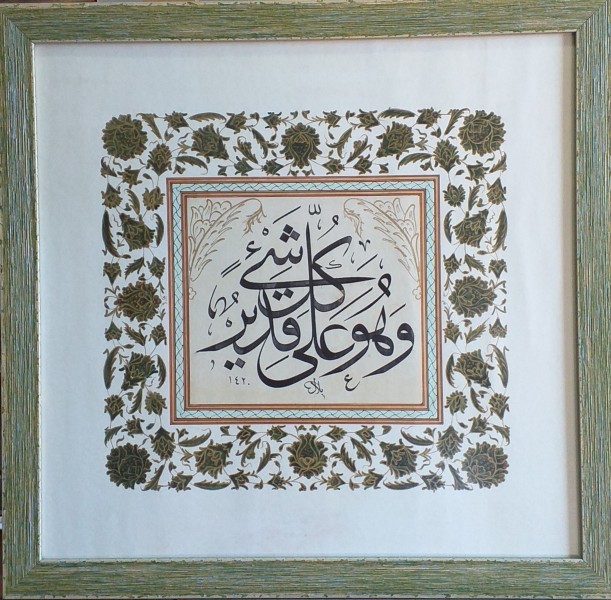 وَهُوَ عَلَى كُلِّ شَيْءٍ قَدِيرٌ
١٤٢٠